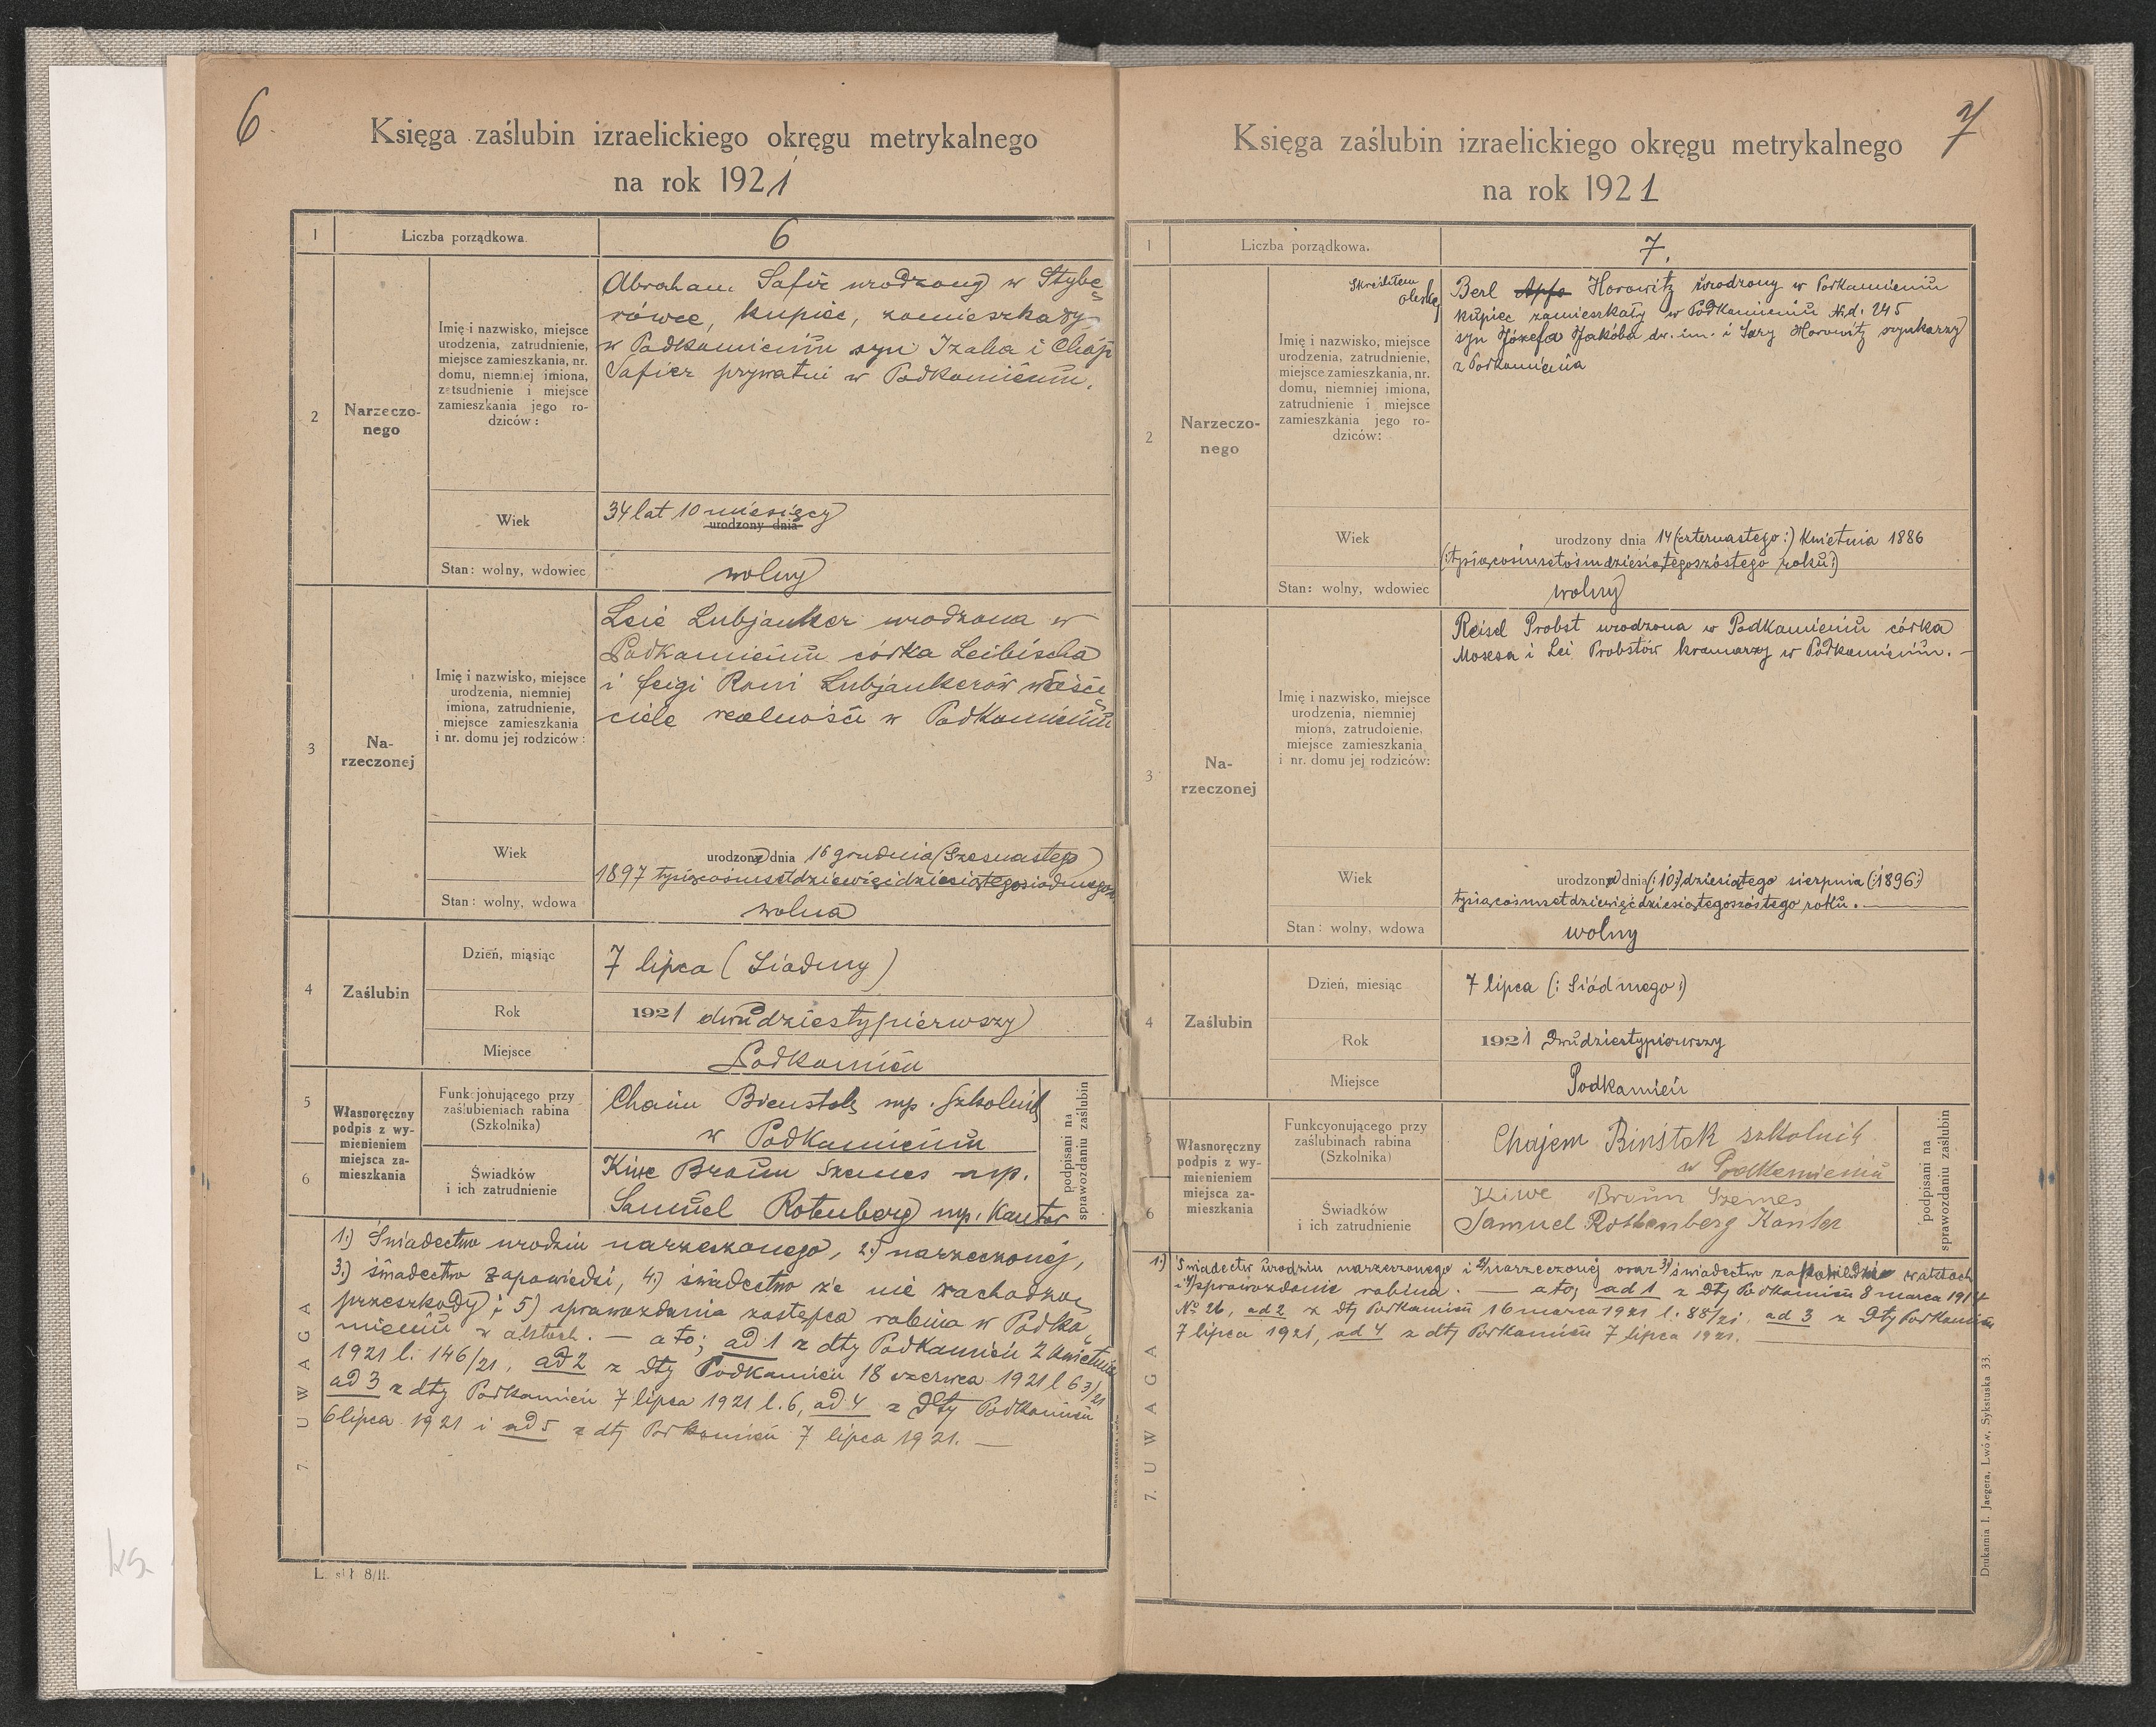 6
Księga zaślubin izraelickiego okręgu metrykalnego
na rok 1921
1
Liczba porządkowa.
6
2
Narzeczo-
nego
Imię i nazwisko, miejsce
urodzenia, zatrudnienie,
miejsce zamieszkania, nr.
domu, niemniej imiona,
zetsudnienie i miejsce
zamieszkania jego ro-
dziców:
Abraham Safir urodzony w Stybe-
rówce, kupiec, zamieszkały
w Podkamieniu syn Izaka i Chaji
Safier prywatni w Podkamieniu.
Wiek
34 lat 10 miesięcy
urodzony dnia
Stan: wolny, wdowiec
wolny
3
Na-
rzeczonej
Imię i nazwisko, miejsce
urodzenia, niemniej
imiona, zatrudnienie,
miejsce zamieszkania
i nr. domu jej rodziców:
Leie Lubjanker urodzona w
Podkamieniu córka Leibischa
i Feigi Roni Lubjankerów właści-
ciele realności w Podkamieniu
Wiek
urodzona dnia 16 grudnia (Szesnastego)
1897 tysiącośmsetdziewięćdziesiątegosiódmego
Stan: wolny, wdowa
wolna
4
Zaślubin
Dzień, miąsiąc
7 lipca (Siódmy)
Rok
1921 dwudziestypierwszy
Miejsce
Podkamień
5
6
Własnoręczny
podpis z wy-
mienieniem
miejsca za-
mieszkania
Funkcjonującego przy
zaślubieniach rabina
(Szkolnika)
Chaim Bienstok mp. Szkolnik
w Podkamieniu
Świadków
i ich zatrudnienie
Kiwe Braun Szames mp.
Samuel Rotenberg mp. Kantor
podpisani na
sprawozdaniu zaślubin
7. UWAGA
1.) Świadectwo urodzin narzeczonego, 2.) narzeczonej,
3.) świadectwo zapowiedzi, 4.) świadectwo że nie zachodzą
przeszkody i 5) sprawozdania zastępca rabina w Podka-
mieniu w aktach. — a to; ad 1 z dty Podkamień 2 kwietnia
1921 l. 146/21, ad 2 z dty Podkamień 18 czerwca 1921 l 63/21
ad 3 z dty Podkamień 7 lipca 1921 l. 6, ad 4 z dty Podkamień
6 lipca 1921 i ad 5 z dty Podkamień 7 lipca 1921. —
7
Księga zaślubin izraelickiego okręgu metrykalnego
na rok 1921
1
Liczba porządkowa.
7.
2
Narzeczo-
nego
Skreśliłem
Imię i nazwisko, miejsce
urodzenia, zatrudnienie,
miejsce zamieszkania, nr.
domu, niemniej imiona,
zatrudnienie i miejsce
zamieszkania jego ro-
dziców:
Berl Apfe Horowitz urodzony w Podkamieniu
kupiec zamieszkały w Podkamieniu N.d. 245
syn Józefa Jakóba dw. im. i Sary Horowitz szynkarzy
z Podkamienia
Wiek
urodzony dnia 14 (czternastego:) kwietnia 1886
(:tysiącośmsetośmdziesiątegoszóstego roku:)
Stan: wolny, wdowiec
wolny
3
Na-
rzeczonej
Imię i nazwisko, miejsce
urodzenia, niemniej
miona, zatrudoienie,
miejsce zamieszkania
i nr. domu jej rodziców:
Reisel Probst urodzona w Podkamieniu córka
Mosesa i Lei Probstów kramarzy w Podkamieniu. —
Wiek
urodzona dnia (:10:) dziesiątego sierpnia (:1896:)
tysiącośmsetdziewięćdziesiątegoszóstego roku. —
Stan: wolny, wdowa
wolny
4
Zaślubin
Dzień, miesiąc
7 lipca (: Siódmego:)
Rok
1921 Dwudziestypierwszy
Miejsce
Podkamień
5
6
Własnoręczny
podpis z wy-
mienieniem
miejsca za-
mieszkania
Funkcyonującego przy
zaślubinach rabina
(Szkolnika)
Chajem Binstok szkolnik
w Podkamieniu
Świadków
i ich zatrudnienie
Kiwe Braun Szames
Samuel Rothenberg Kantor
podpisani na
sprawozdaniu zaślubin
7. UWAGA
1.) Świadectw urodzin narzeczonego i 2) narzeczonej oraz 3) świadectwo zapowiedzi w aktach
i 4) sprawozdanie rabina. — a to; ad 1 z dty Podkamień 8 marca 1914
No 26, ad 2 z dty Podkamień 16 marca 1921 l. 88/21, ad 3 z dty Podkamień
7 lipca 1921, ad 4 z dty Podkamień 7 lipca 1921. —
L. skł. 8/II.
Drukarnia I. Jaegera, Lwów, Sykstuska 33.